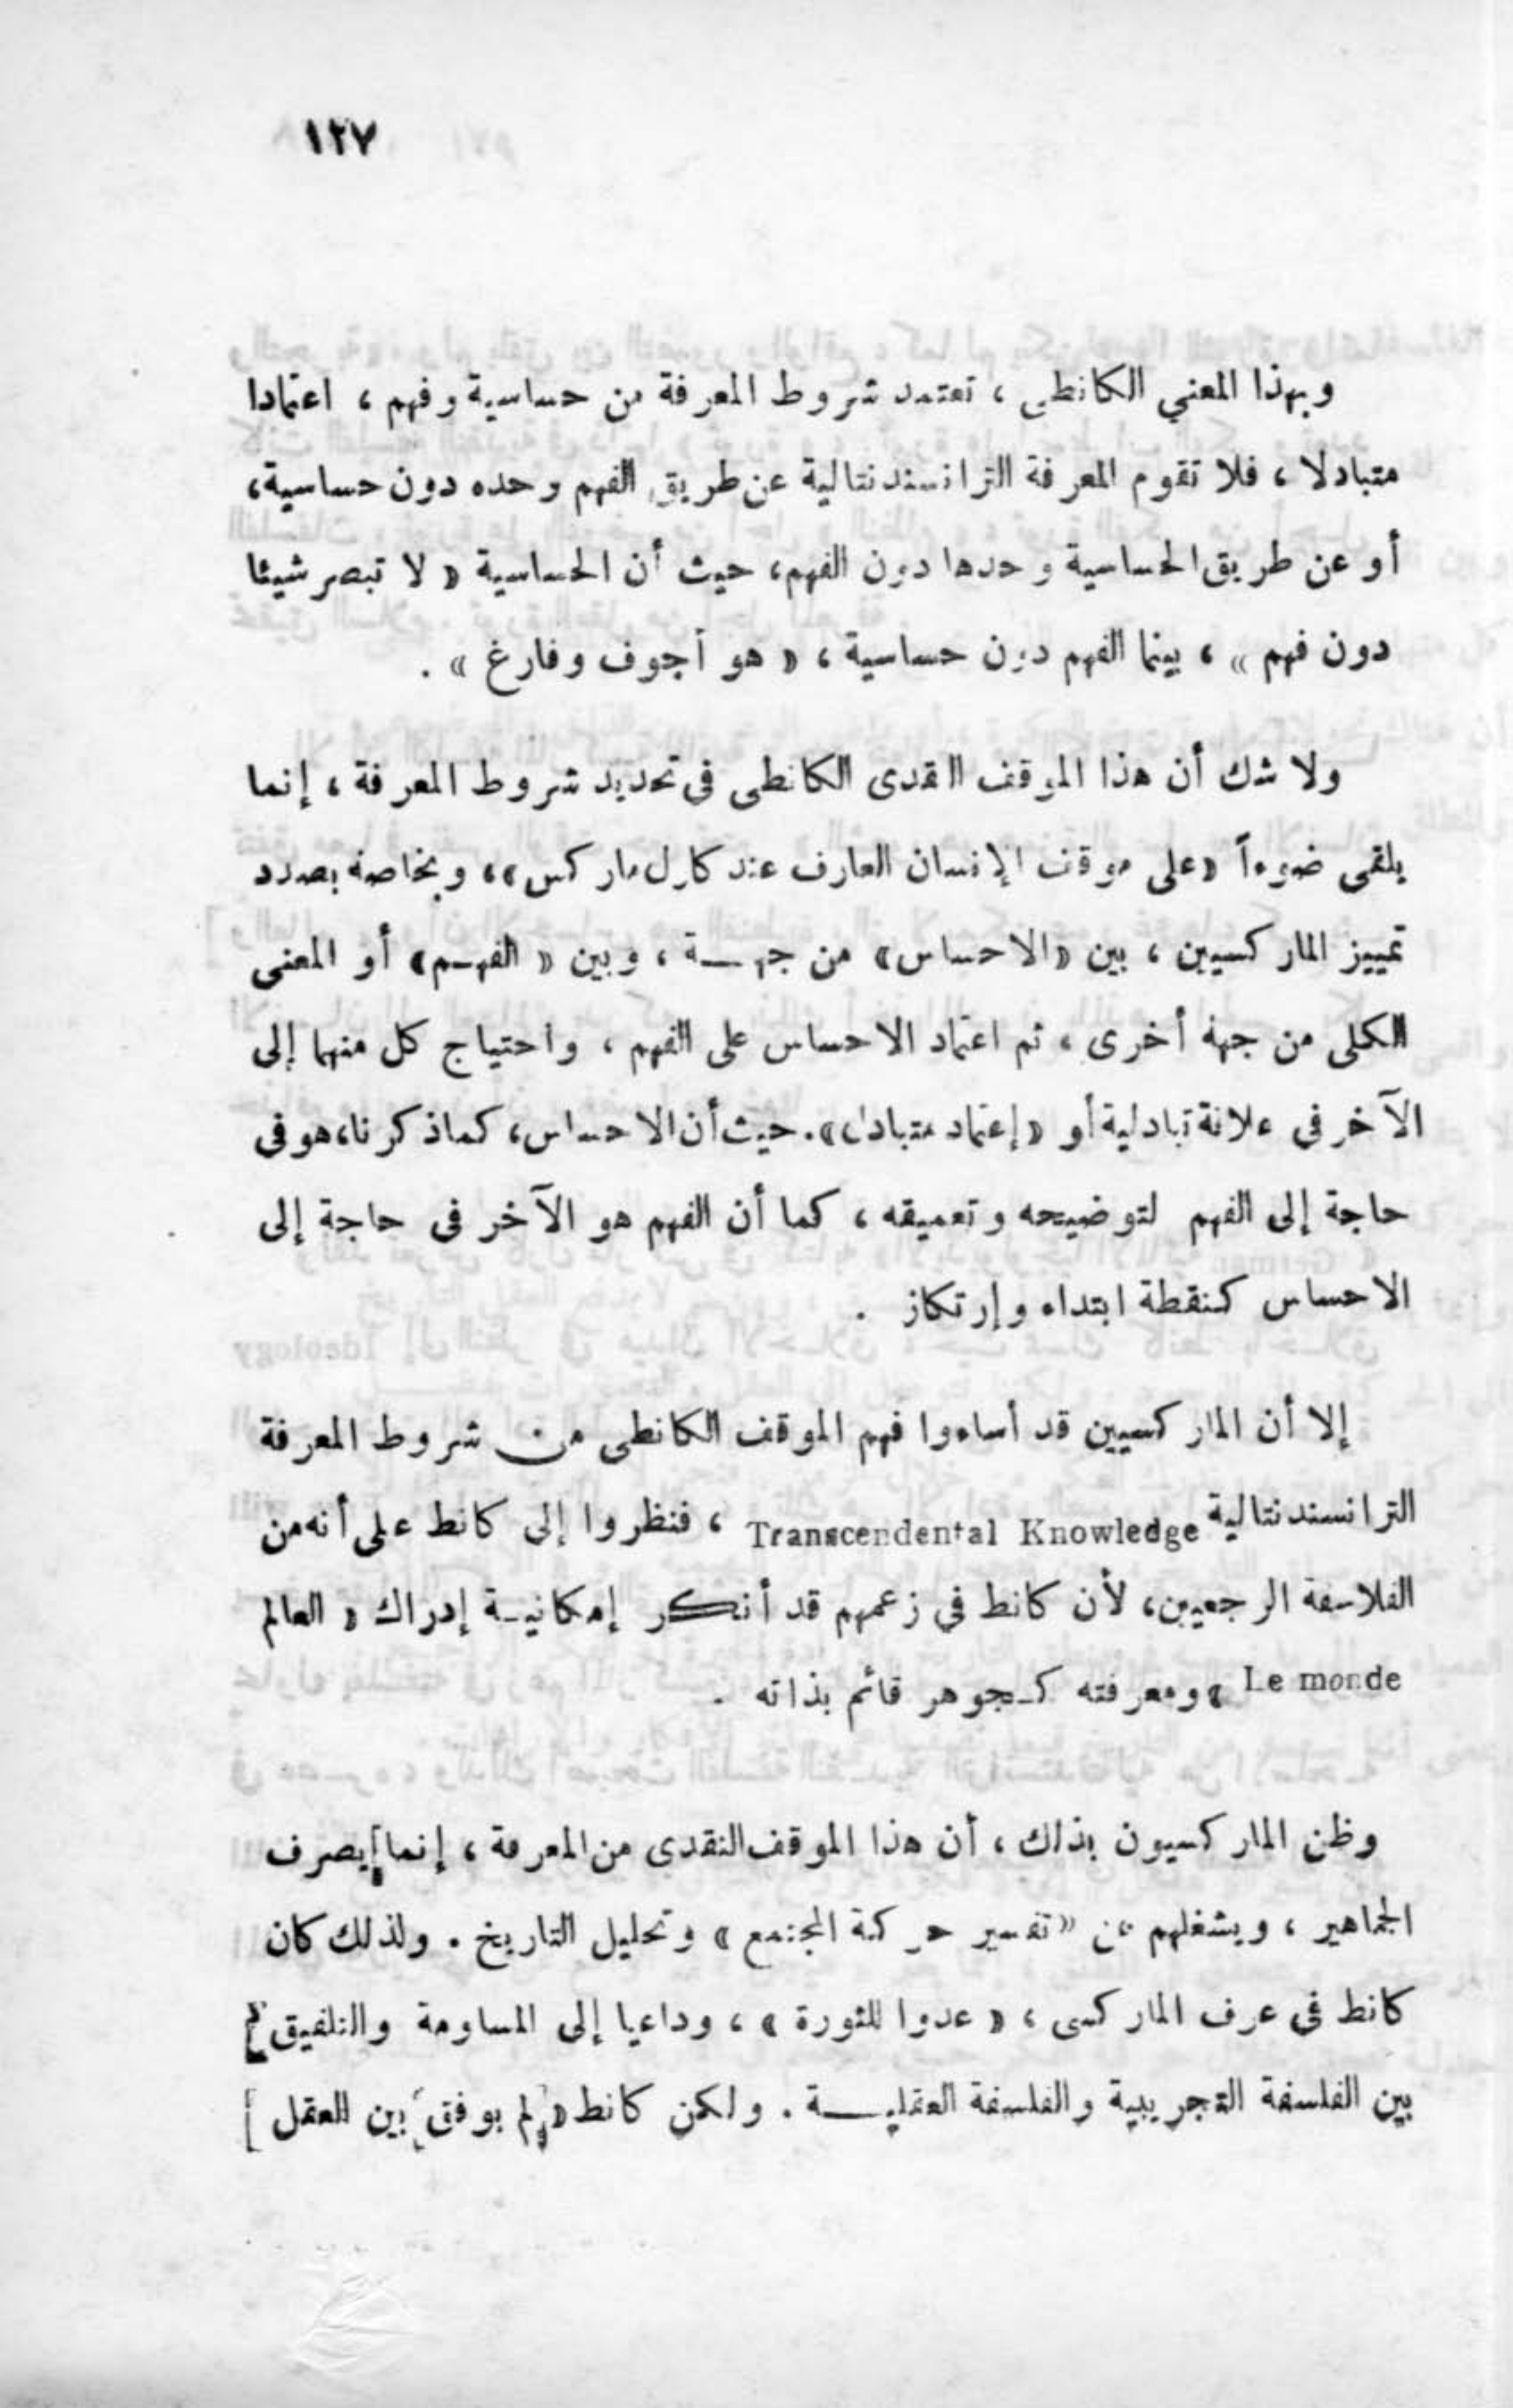 ١٢٧
وبهذا المعني الكانطى ، تعتمد شروط المعرفة من حساسية وفهم ، اعتمادا
متبادلا ، فلا تقوم المعرفة الترانسندنتالية عن طريق الفهم وحده دون حساسية،
أو عن طريق الحساسية وحدها دون الفهم، حيث أن الحساسية « لا تبصر شيئا
دون فهم » ، بينما الفهم دون حساسية ، « هو أجوف وفارغ » .
ولا شك أن هذا الموقف النقدى الكانطى فى تحديد شروط المعرفة ، إنما
يلقى ضوءاً «على موقف الإنسان العارف عند كارل ماركس»، وبخاصة بصدد
تمييز الماركسيين ، بين «الاحساس» من جهــة ، وبين « الفهـم» أو المعنى
الكلى من جهة أخرى ، ثم اعتماد الاحساس على الفهم ، واحتياج كل منهما إلى
الآخر فى علاقة تبادلية أو «إعتماد متبادل». حيث أن الاحساس، كما ذكرنا، هو فى
حاجة إلى الفهم لتوضيحه وتعميقه ، كما أن الفهم هو الآخر فى حاجة إلى
الاحساس كنقطة ابتداء وإرتكاز .
إلا أن الماركسيين قد أساءوا فهم الموقف الكانطى من شروط المعرفة
الترانسندنتالية Transcendental Knowledge ، فنظروا إلى كانط على أنه من
الفلاسفة الرجعيين، لأن كانط في زعمهم قد أنكر إمكانيـة إدراك « العالم
Le monde » ومعرفته كـجوهر قائم بذاته .
وظن الماركسيون بذلك ، أن هذا الموقف النقدى من المعرفة ، إنما يصرف
الجماهير ، ويشغلهم عن «تفسير حركة المجتمع » وتحليل التاريخ . ولذلك كان
كانط فى عرف الماركسى ، « عدوا للثورة » ، وداعيا إلى المساومة والتلفيق
بين الفلسفة التجريبية والفلسفة العقليــة . ولكن كانط « لم يوفق بين العقل